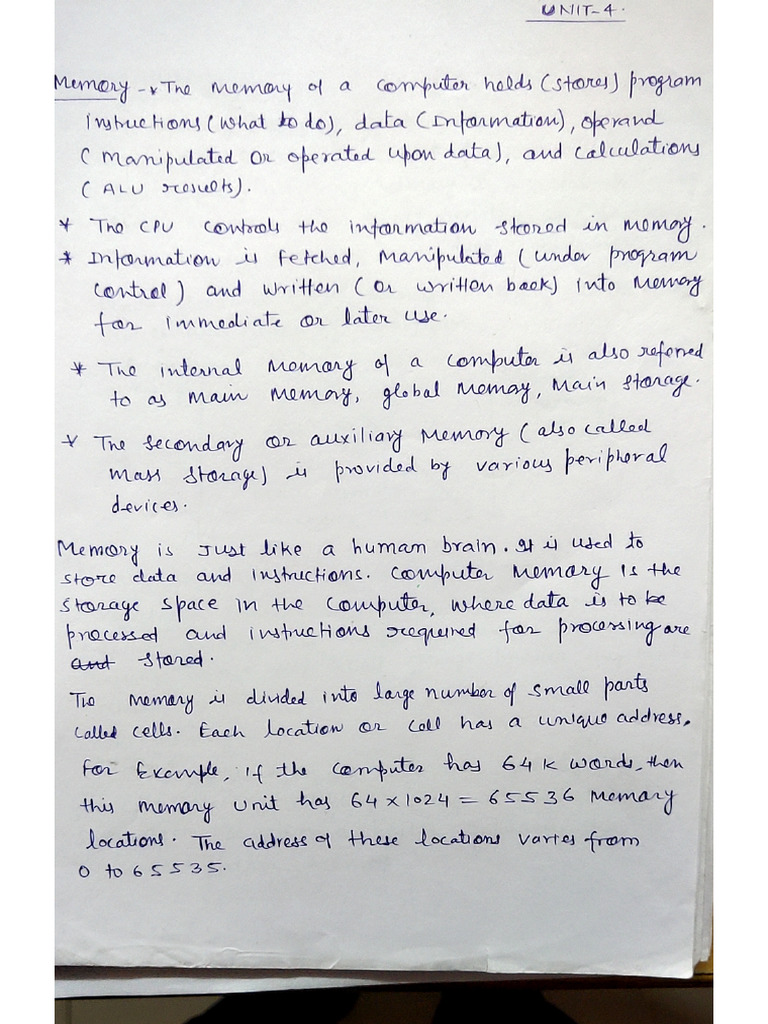 UNIT-4.
Memory -* The memory of a computer holds (stores) program
instructions (what to do), data (information), operand
(manipulated or operated upon data), and calculations
(ALU results).
* The CPU controls the information stored in memory.
* Information is fetched, manipulated (under program
control) and written (or written back) into memory
for immediate or later use.
* The internal memory of a computer is also referred
to as main memory, global memory, main storage.
* The secondary or auxiliary memory (also called
mass storage) is provided by various peripheral
devices.
Memory is just like a human brain. It is used to
store data and instructions. Computer memory is the
storage space in the computer, where data is to be
processed and instructions required for processing are
and stored.
The memory is divided into large number of small parts
called cells. Each location or cell has a unique address.
For Example, if the computer has 64 K words, then
this memory unit has 64 x 1024 = 65536 memory
locations. The address of these locations varies from
0 to 65535.